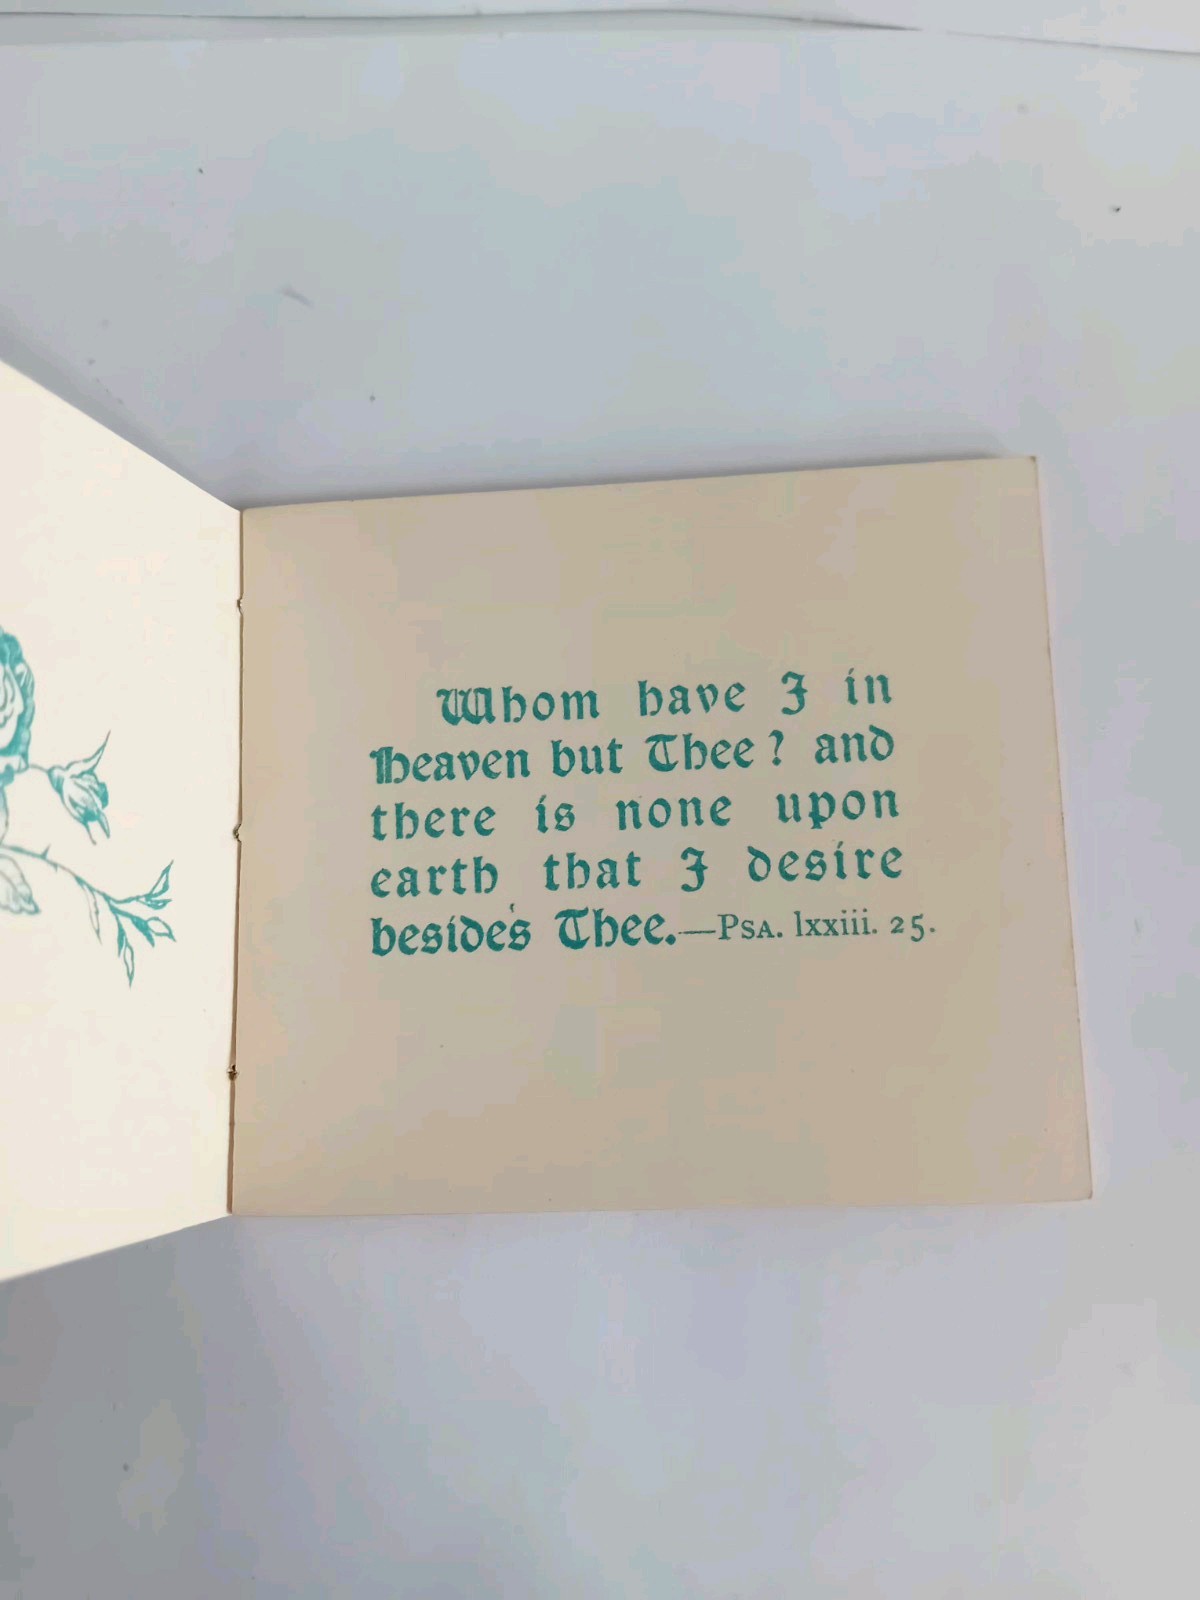 Whom have I in
Heaven but Thee? and
there is none upon
earth that I desire
besides Thee.—Psa. lxxiii. 25.